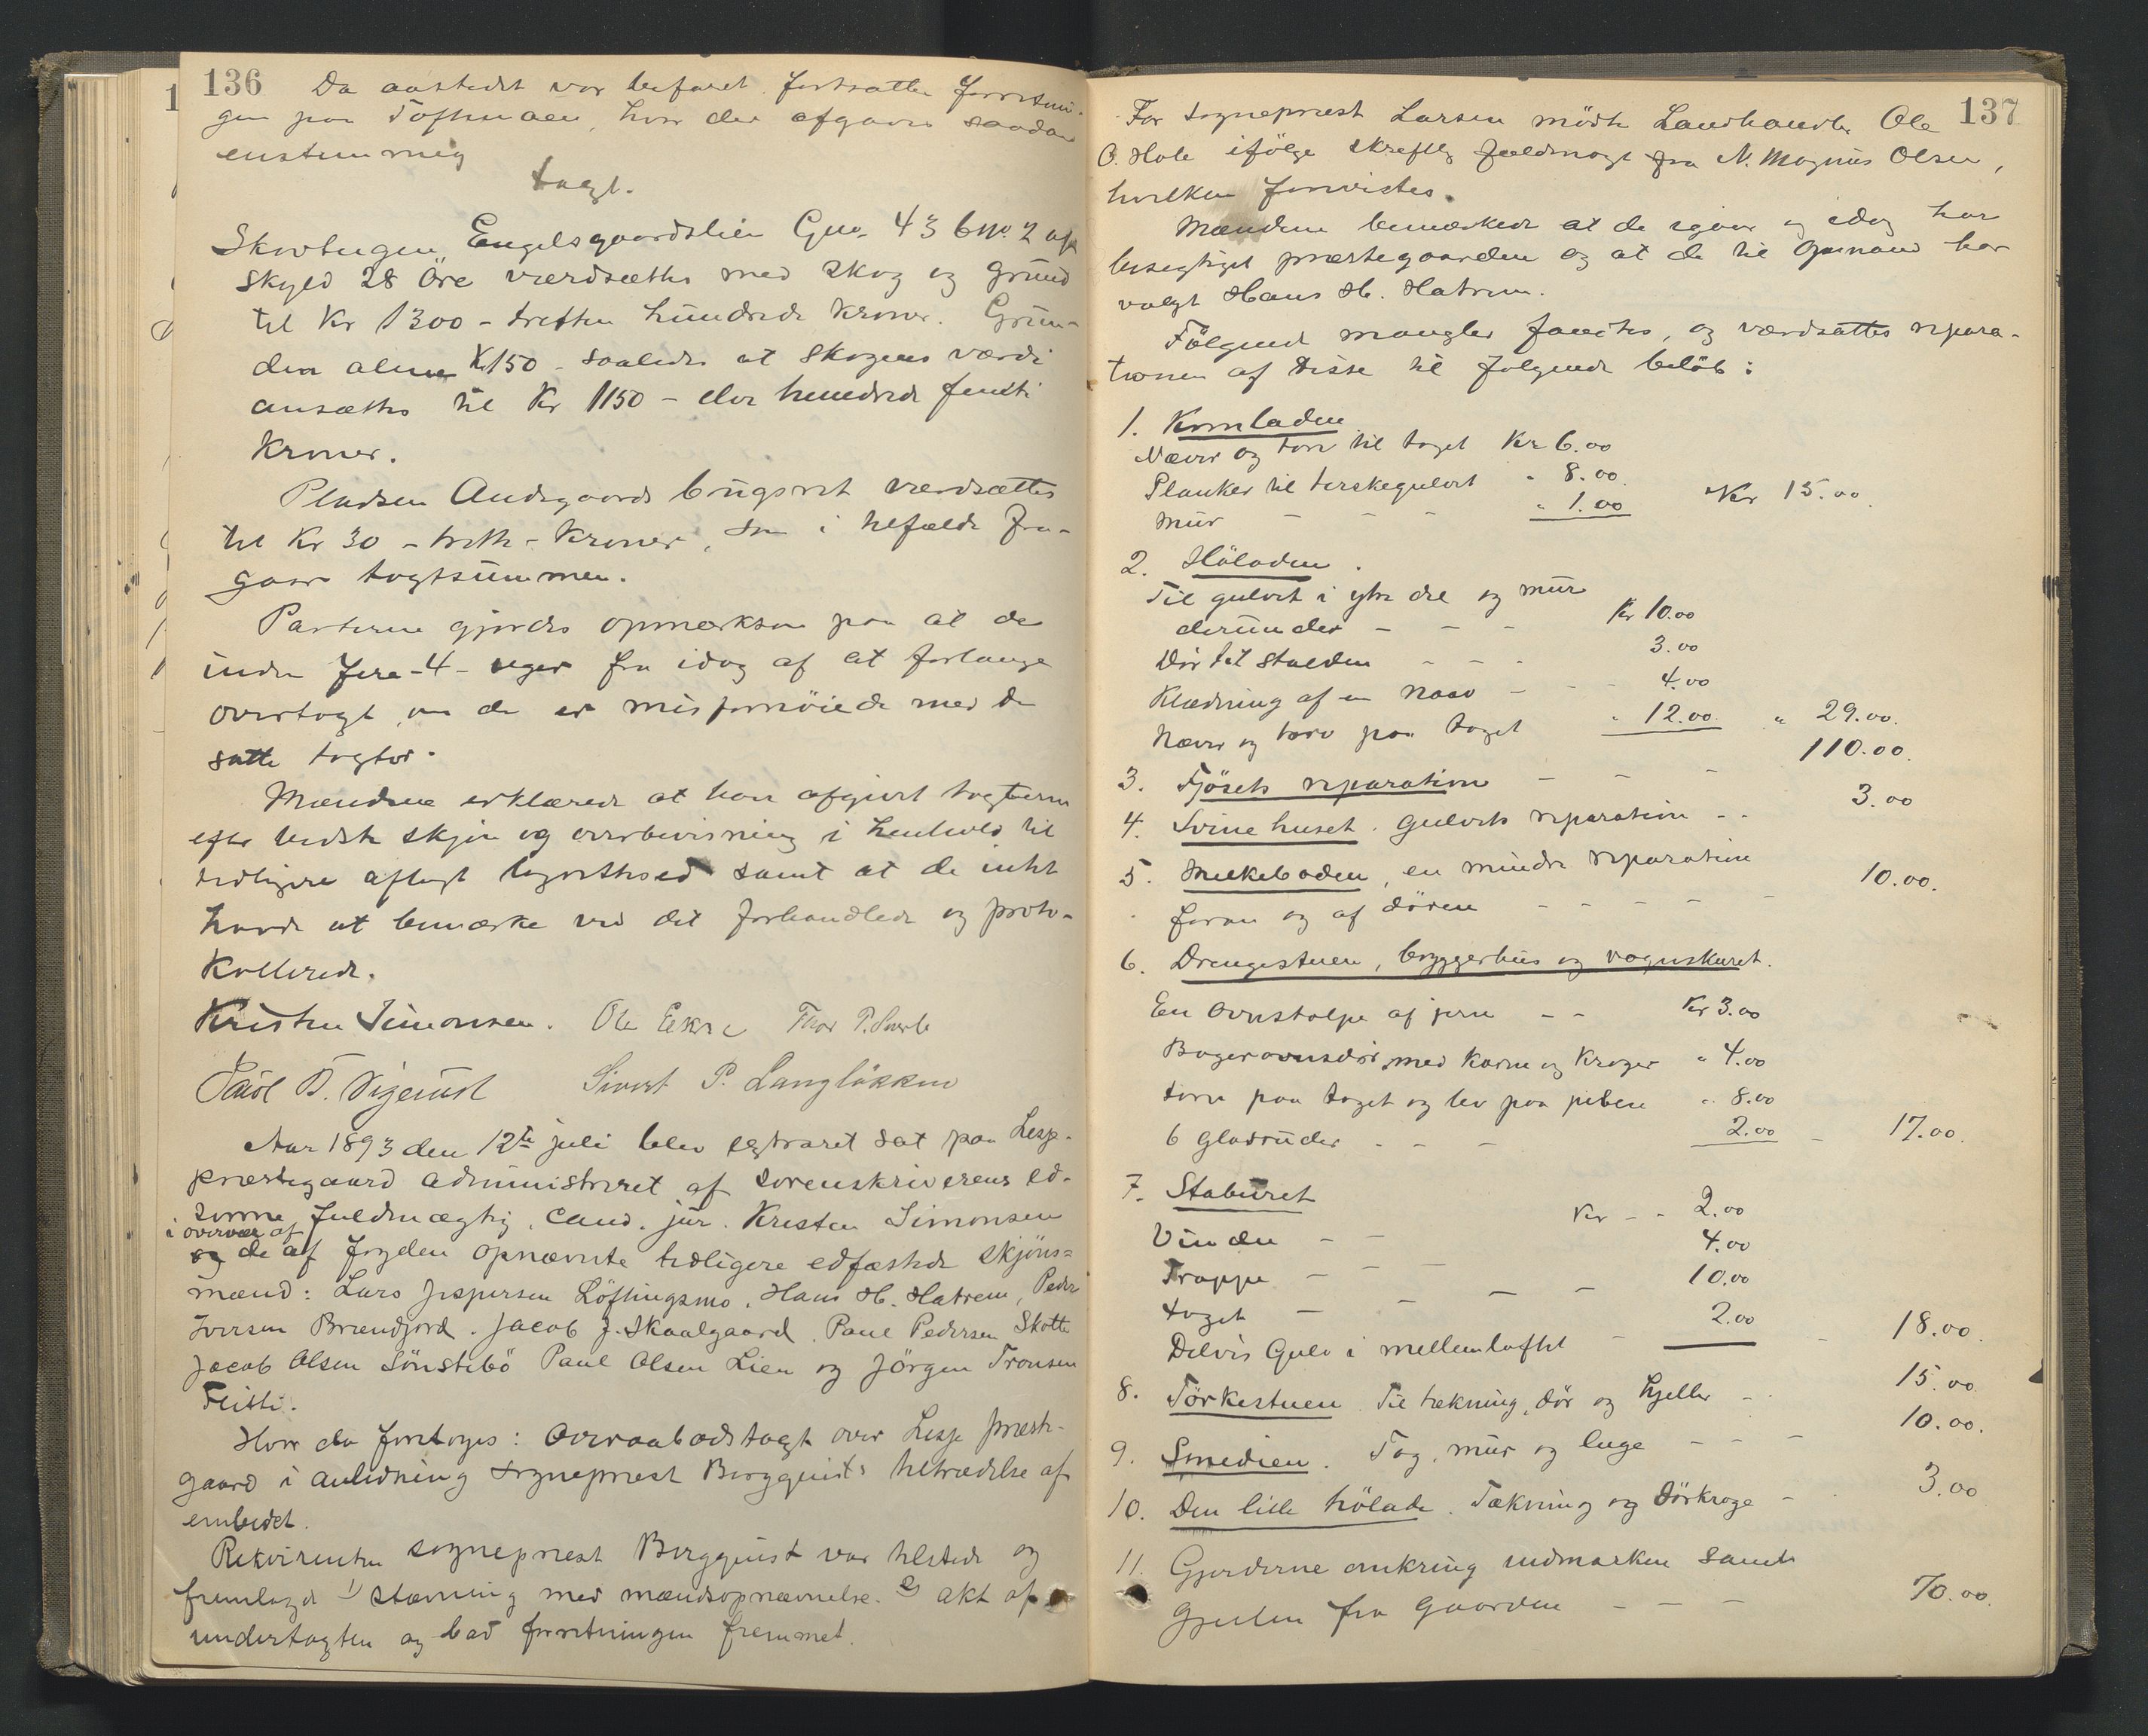 136
Da aastedet var befaret fortsattes forretnin-
gen paa Toftmoen, hvor der afgaves saadan
enstemmig
takst.
Skovteigen Engelsgaardslien Gno. 43 bno. 2 af
skyld 28 Öre værdsættes med skog og grund
til Kr 1300 - tretten hundrede kroner. Grun-
den alene K 150 - saaledes at skogens værdi
ansættes til Kr 1150 - elve hundrede femti
kroner.
Pladsen Andsgaards brugsret værdsættes
til Kr 30 - tretti - kroner, som i tilfælde fra-
gaar tagtsummen.
Parterne gjordes opmerksom paa at de
inden fire - 4 - uger fra idag af at forlange
overtagt, om de er misfornöiede med de
satte tagter.
Mændene erklærede at have afgivet tagterne
efter bedste skjön og overbevisning i henhold til
tidligere aflagt lagrettesed samt at de intet
havde at bemærke ved det forhandlede og proto-
kollerede.
Kristen Simonsen. Ole Ekre Thor P.
Paul T. Sigerust Sivert P. Langlökken
Aar 1893 den 12te juli blev extraret sat paa Lesje
præstegaard administreret af sorenskriverens ed-
sorne fuldmægtig, cand. jur. Kristen Simonsen
i overvær af
og de af fogden opnævnte tidligere edfæstede skjöns=
mænd: Lars Jespersen Löftingsmo, Hans H. Hatrem, Peder
Iversen Brændjord. Jacob J. Skaalgaard, Paul Pedersen Skotte
Jacob Olsen Sönstebö Paul Olsen Lien og Jörgen Tronsen
Flitti.
Hvor da foretoges: Overaabodstagt over Lesje præste-
gaard i anledning sogneprest Bergquist's tiltrædelse af
embedet.
Rekvirenten sogneprest Bergquist var tilstede og
fremlagde 1) stævning med mandsopnævnelse. 2) akt af
undertagten og bad forretningen fremmet.
137
For sogneprest Larsen mödte Landhandler Ole
O. Hole ifölge skreftlig fuldmagt fra N. Magnus Olsen,
hvilken forevistes.
Mændene bemærkede at de igaar og idag har
besigtiget præstegaarden og at de til Opmand har
valgt Hans H. Hatrem.
Fölgende mangler fandtes, og værdsattes repara-
tionen af disse til fölgende belöb:
1. Kornladen
Næver og torv til taget Kr 6.00
Planker til terskegulvet " 8.00
Mur - - - " 1.00 Kr 15.00
2. Höladen.
Til gulvet i ytre del og mur
derunder - - - Kr 10.00
Dör til stalden - - - 3.00
Klædning af en nov - - - 4.00
Næver og torv paa taget " 12.00 " 29.00.
3. Fjösets reparation - - - 110.00.
4. Svinehuset. Gulvets reparation - - 3.00
5. Melkeboden, en mindre reparation
foran og af dören - - - - - 10.00.
6. Drengestuen, bryggerhus og vognskuret.
En ovnstolpe af jern - - Kr 3.00
Bagerovnsdör med karm og kroger " 4.00
torv paa taget og lev paa piben " 8.00
6 gladruder - - - 2.00 - 17.00.
7. Staburet
Vinden - - Kr - - 2.00
Trappe - - - 4.00
taget - - - - 10.00
Delvis Gulv i mellemloftet - 2.00 - 18.00.
8. Törkestuen. Til tækning, dör og hjeller - 15.00
9. Smedien. Tag, mur og luge - - - 10.00.
10. Den lille hölade. Tækning og dörkroge - 3.00
11. Gjerderne omkring indmarken samt
gjeilen fra gaarden - - - 70.00.